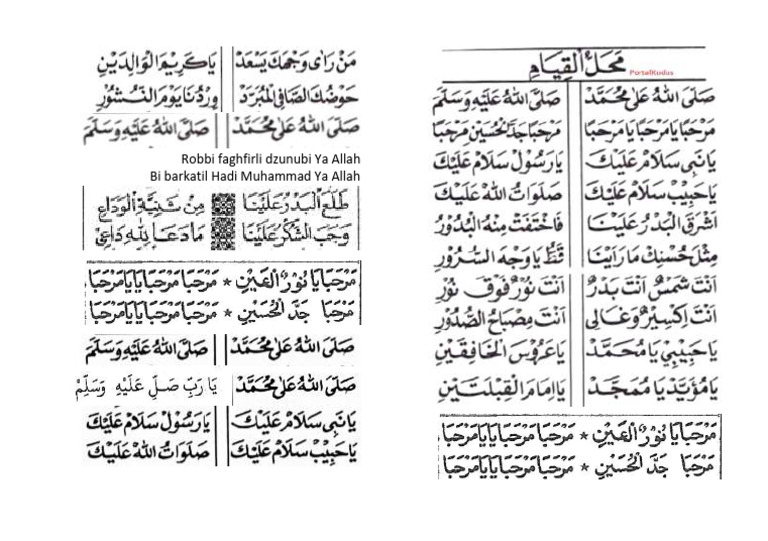 مَحَلُّ الْقِيَامِ
PortalKudus
صَلَّى اللهُ عَلَى مُحَمَّدْ صَلَّى اللهُ عَلَيْهِ وَسَلَّمْ
مَرْحَبًا يَا مَرْحَبًا يَا مَرْحَبًا مَرْحَبًا جَدَّ الْحُسَيْنِ مَرْحَبًا
يَا نَبِي سَلَامْ عَلَيْكَ يَا رَسُوْلْ سَلَامْ عَلَيْكَ
يَا حَبِيْبْ سَلَامْ عَلَيْكَ صَلَوَاتُ اللهْ عَلَيْكَ
اَشْرَقَ الْبَدْرُ عَلَيْنَا فَاخْتَفَتْ مِنْهُ الْبُدُوْرُ
مِثْلَ حُسْنِكْ مَا رَاَيْنَا قَطُّ يَا وَجْهَ السُّرُوْرِ
اَنْتَ شَمْسٌ اَنْتَ بَدْرٌ اَنْتَ نُوْرٌ فَوْقَ نُوْرٍ
اَنْتَ اِكْسِيْرٌ وَغَالِي اَنْتَ مِصْبَاحُ الصُّدُوْرِ
يَا حَبِيْبِيْ يَا مُحَمَّدْ يَا عَرُوْسَ الْخَافِقَيْنِ
يَا مُؤَيَّدْ يَا مُمَجَّدْ يَا اِمَامَ الْقِبْلَتَيْنِ
مَرْحَبًا يَا نُوْرَ الْعَيْنِ * مَرْحَبًا مَرْحَبًا يَا يَا مَرْحَبًا
مَرْحَبًا جَدَّ الْحُسَيْنِ * مَرْحَبًا مَرْحَبًا يَا يَا مَرْحَبًا
مَنْ رَاٰى وَجْهَكَ يَسْعَدْ يَا كَرِيْمَ الْوَالِدَيْنِ
حَوْضُكَ الصَّافِى الْمُبَرَّدْ وِرْدُنَا يَوْمَ النُّشُوْرِ
صَلَّى اللهُ عَلَى مُحَمَّدْ صَلَّى اللهُ عَلَيْهِ وَسَلَّمْ
Robbi faghfirli dzunubi Ya Allah
Bi barkatil Hadi Muhammad Ya Allah
طَلَعَ الْبَدْرُ عَلَيْنَا مِنْ ثَنِيَّةِ الْوَدَاعِ
وَجَبَ الشُّكْرُ عَلَيْنَا مَا دَعَا لِلّٰهِ دَاعِيْ
مَرْحَبًا يَا نُوْرَ الْعَيْنِ * مَرْحَبًا مَرْحَبًا يَا يَا مَرْحَبًا
مَرْحَبًا جَدَّ الْحُسَيْنِ * مَرْحَبًا مَرْحَبًا يَا يَا مَرْحَبًا
صَلَّى اللهُ عَلَى مُحَمَّدْ صَلَّى اللهُ عَلَيْهِ وَسَلَّمْ
صَلَّى اللهُ عَلَى مُحَمَّدْ يَا رَبِّ صَلِّ عَلَيْهِ وَسَلِّمْ
يَا نَبِي سَلَامْ عَلَيْكَ يَا رَسُوْلْ سَلَامْ عَلَيْكَ
يَا حَبِيْبْ سَلَامْ عَلَيْكَ صَلَوَاتُ اللهْ عَلَيْكَ